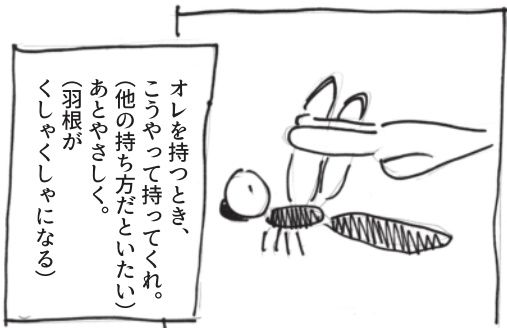 オレを持つとき、
こうやって持ってくれ。
(他の持ち方だといたい)
あとやさしく。
(羽根が
くしゃくしゃになる)